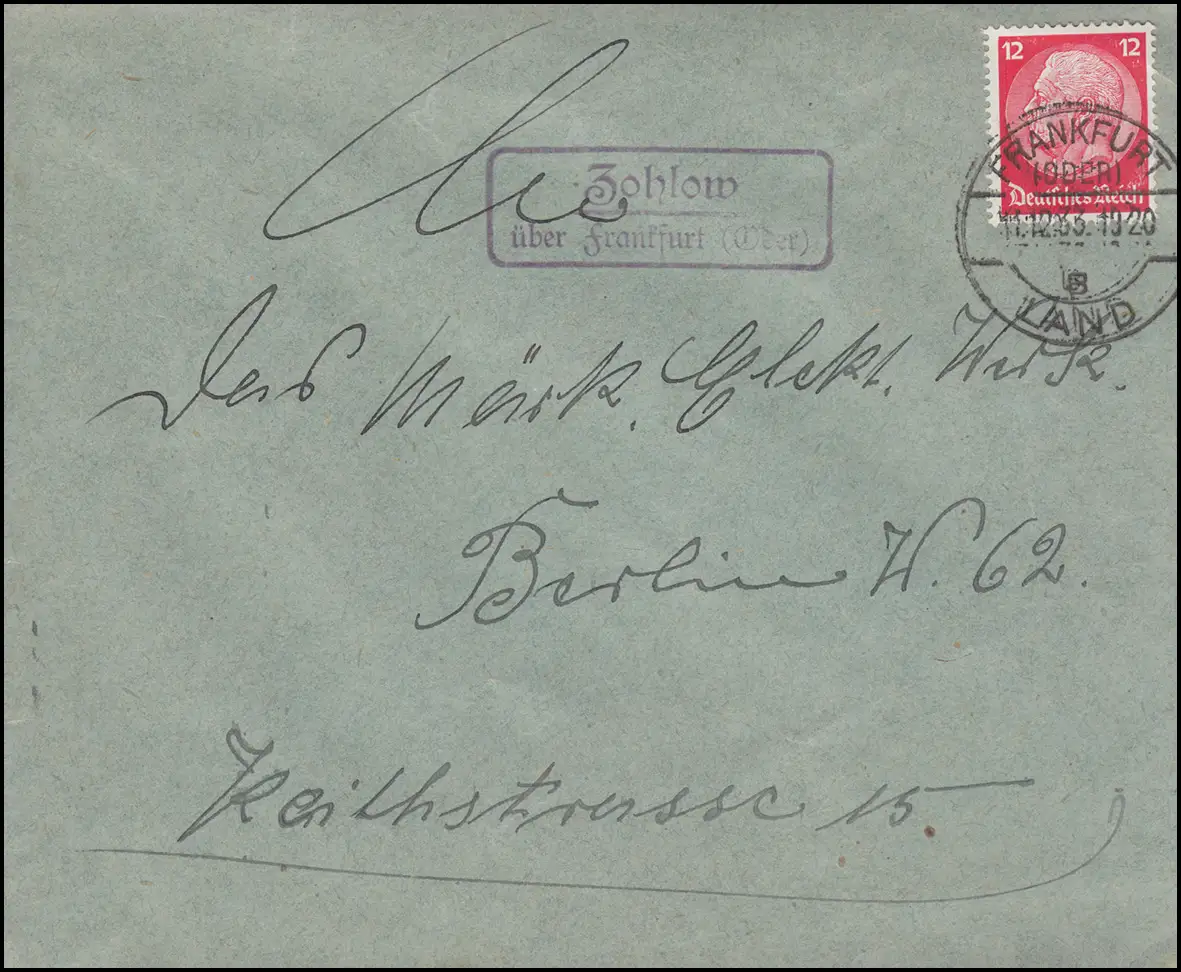 12 12
Deutsches Reich
FRANKFURT
(ODER)
11.12.33. 19-20
LAND
An
Zohlow
über Frankfurt (Oder)
Das Märk. Elekt. Werk.
Berlin W. 62.
Keithstrasse 15